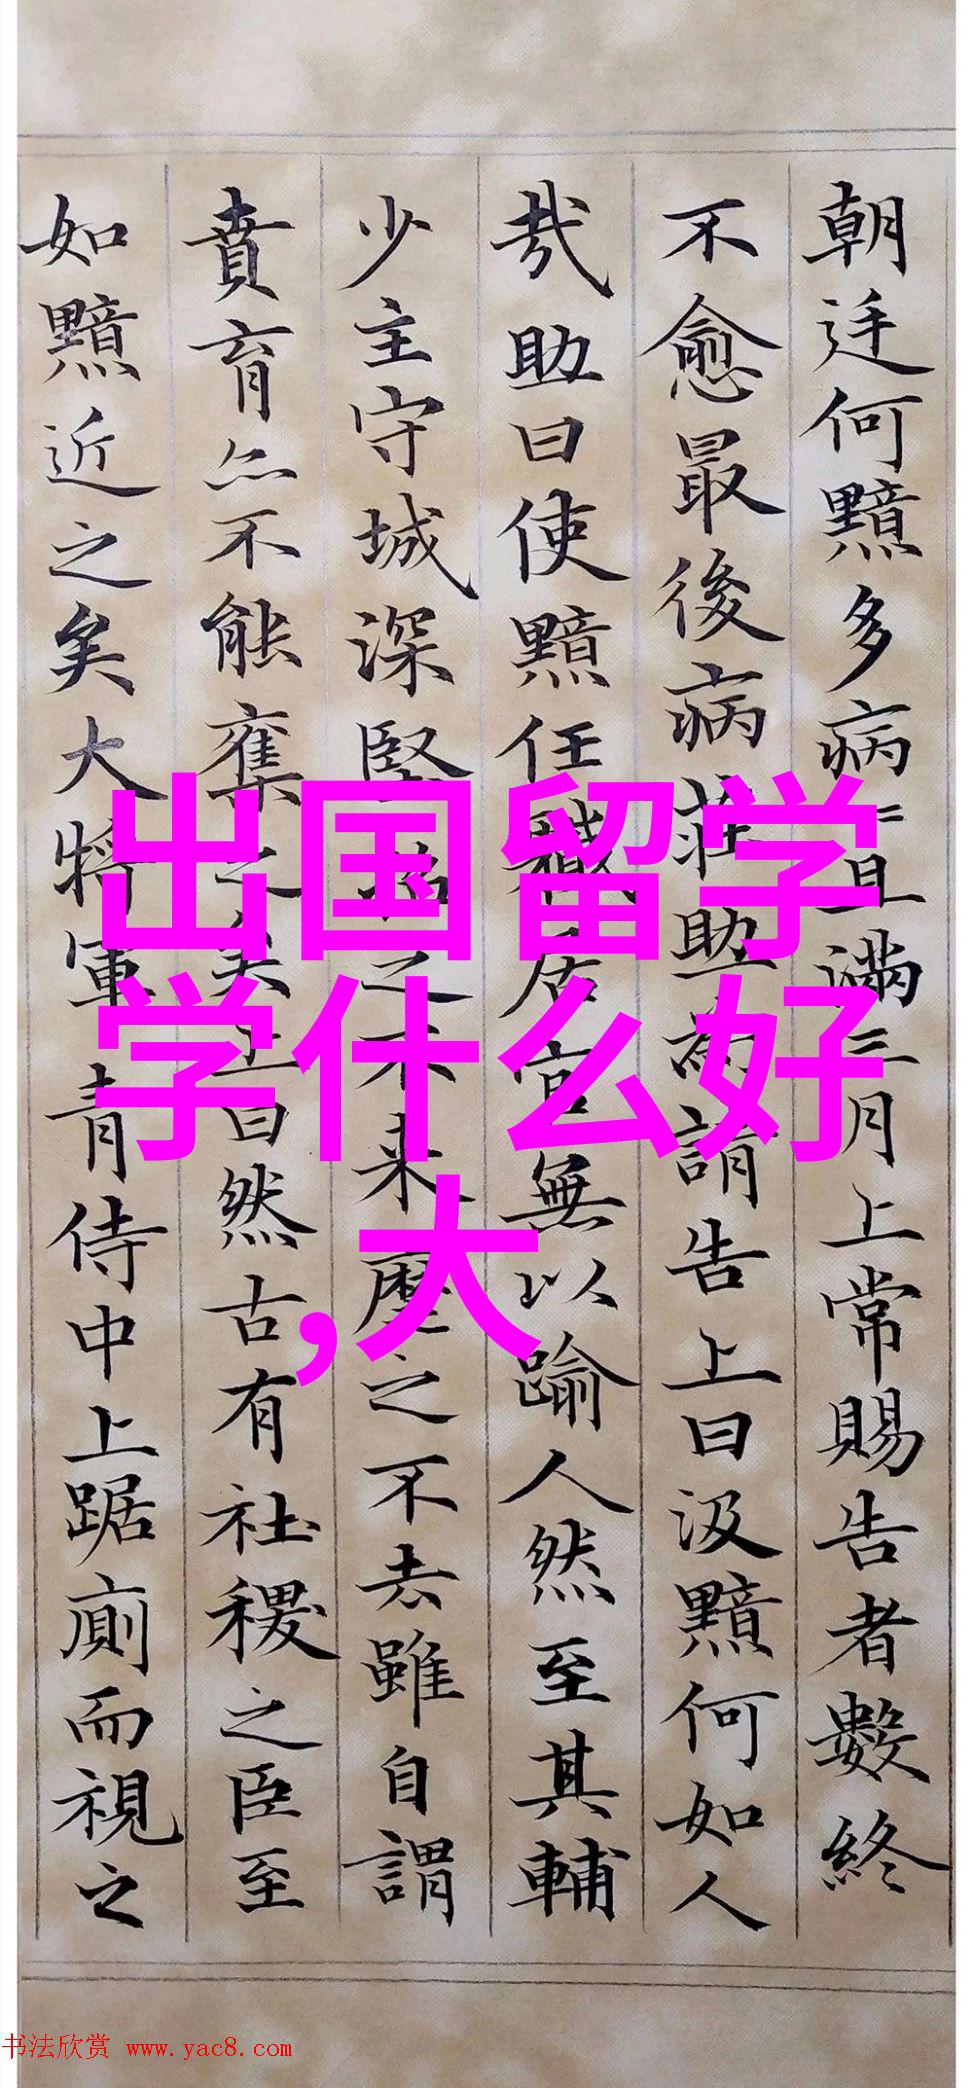 朝廷何黯多病=且滿三月上常賜告者數終
不愈最後病莊助為請告上曰汲黯何如人
哉助曰使黯任職居官無以踰人然至其輔
少主守城深堅招之不来麾之不去雖自謂
賁育亦不能奪之矣上曰然古有社稷之臣至
如黯近之矣大將軍青侍中上踞廁而視之
出国留学
学什么好
,大
书法欣赏 www.yac8.com